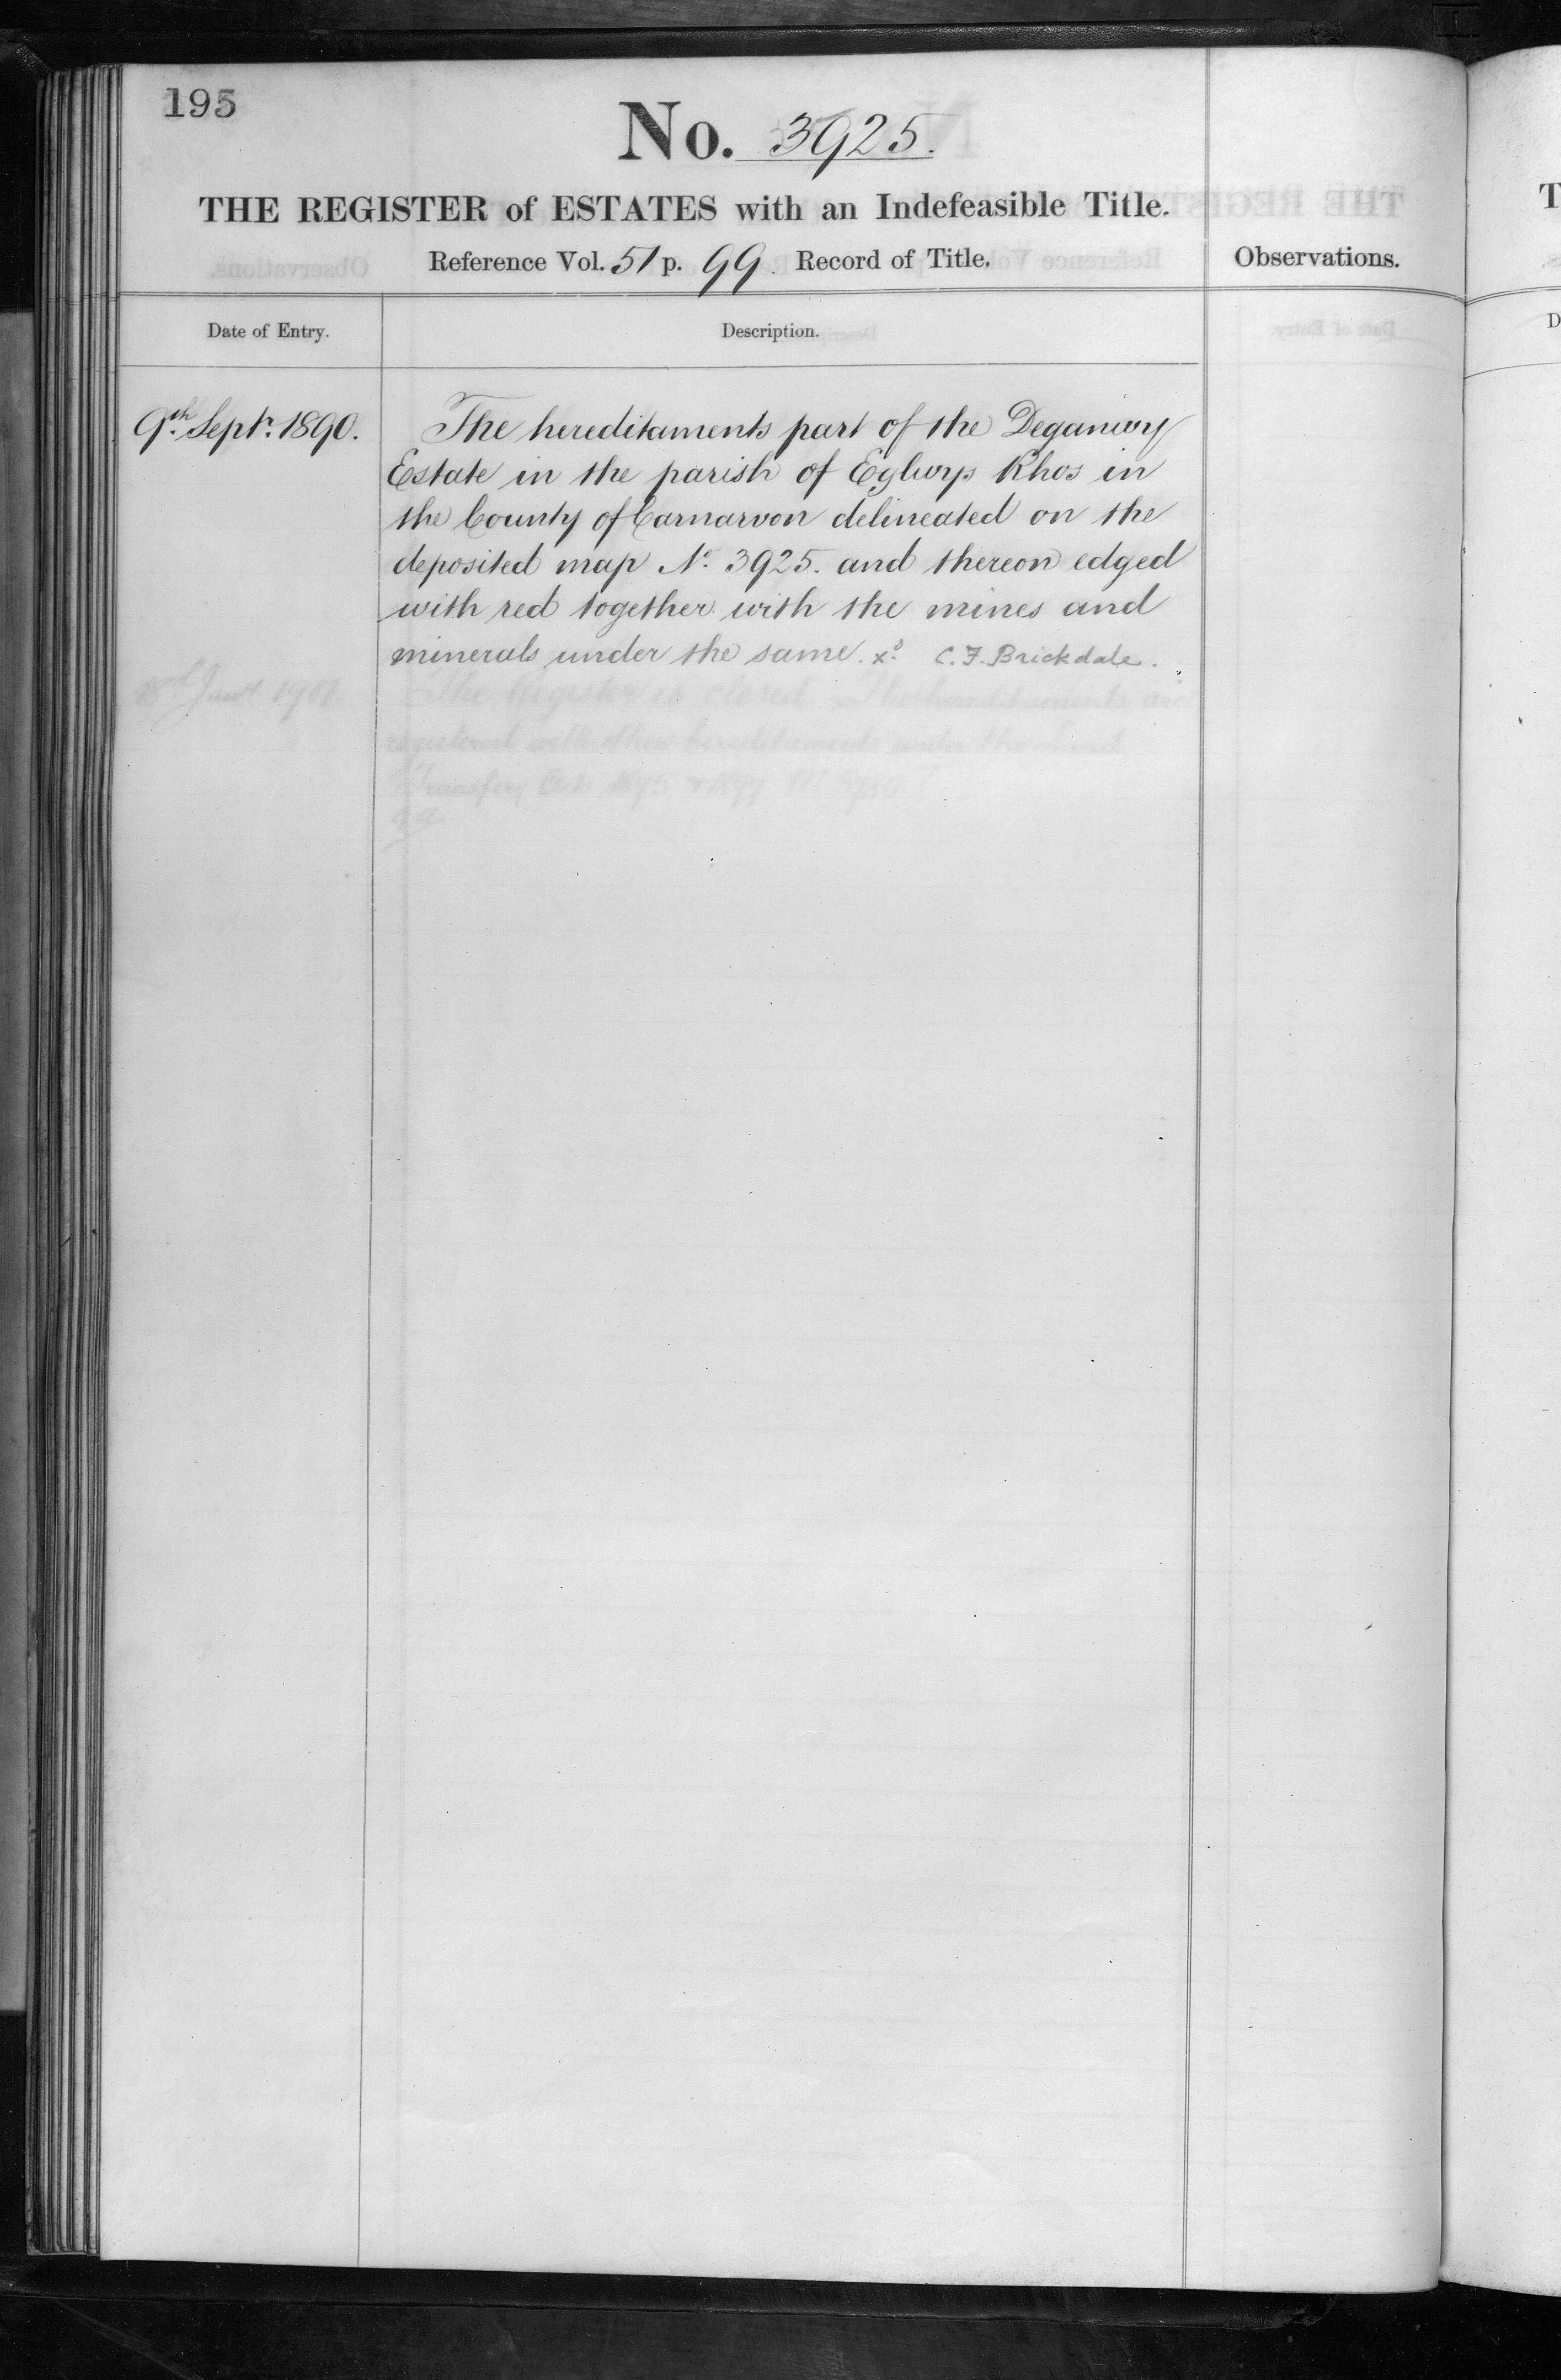 195
No. 3925.
THE REGISTER of ESTATES with an Indefeasible Title.
Reference Vol. 51 p. 99. Record of Title.
Observations.
Date of Entry.
Description.
9th Septr. 1890.
The hereditaments part of the Deganwy
Estate in the parish of Eglwys Rhos in
the County of Carnarvon delineated on the
deposited map No. 3925. and thereon edged
with red together with the mines and
minerals under the same. xd. C. F. Brickdale.
1901.
The Register is closed The hereditaments are
registered with other hereditaments under the Land
Transfer Acts 1875 & 1897 No.